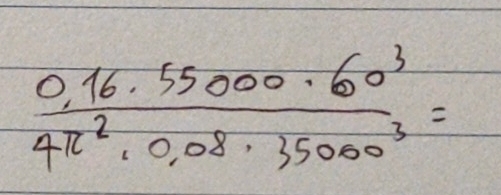 0,16 · 55000 · 60³
4π² · 0,08 · 35000³ =